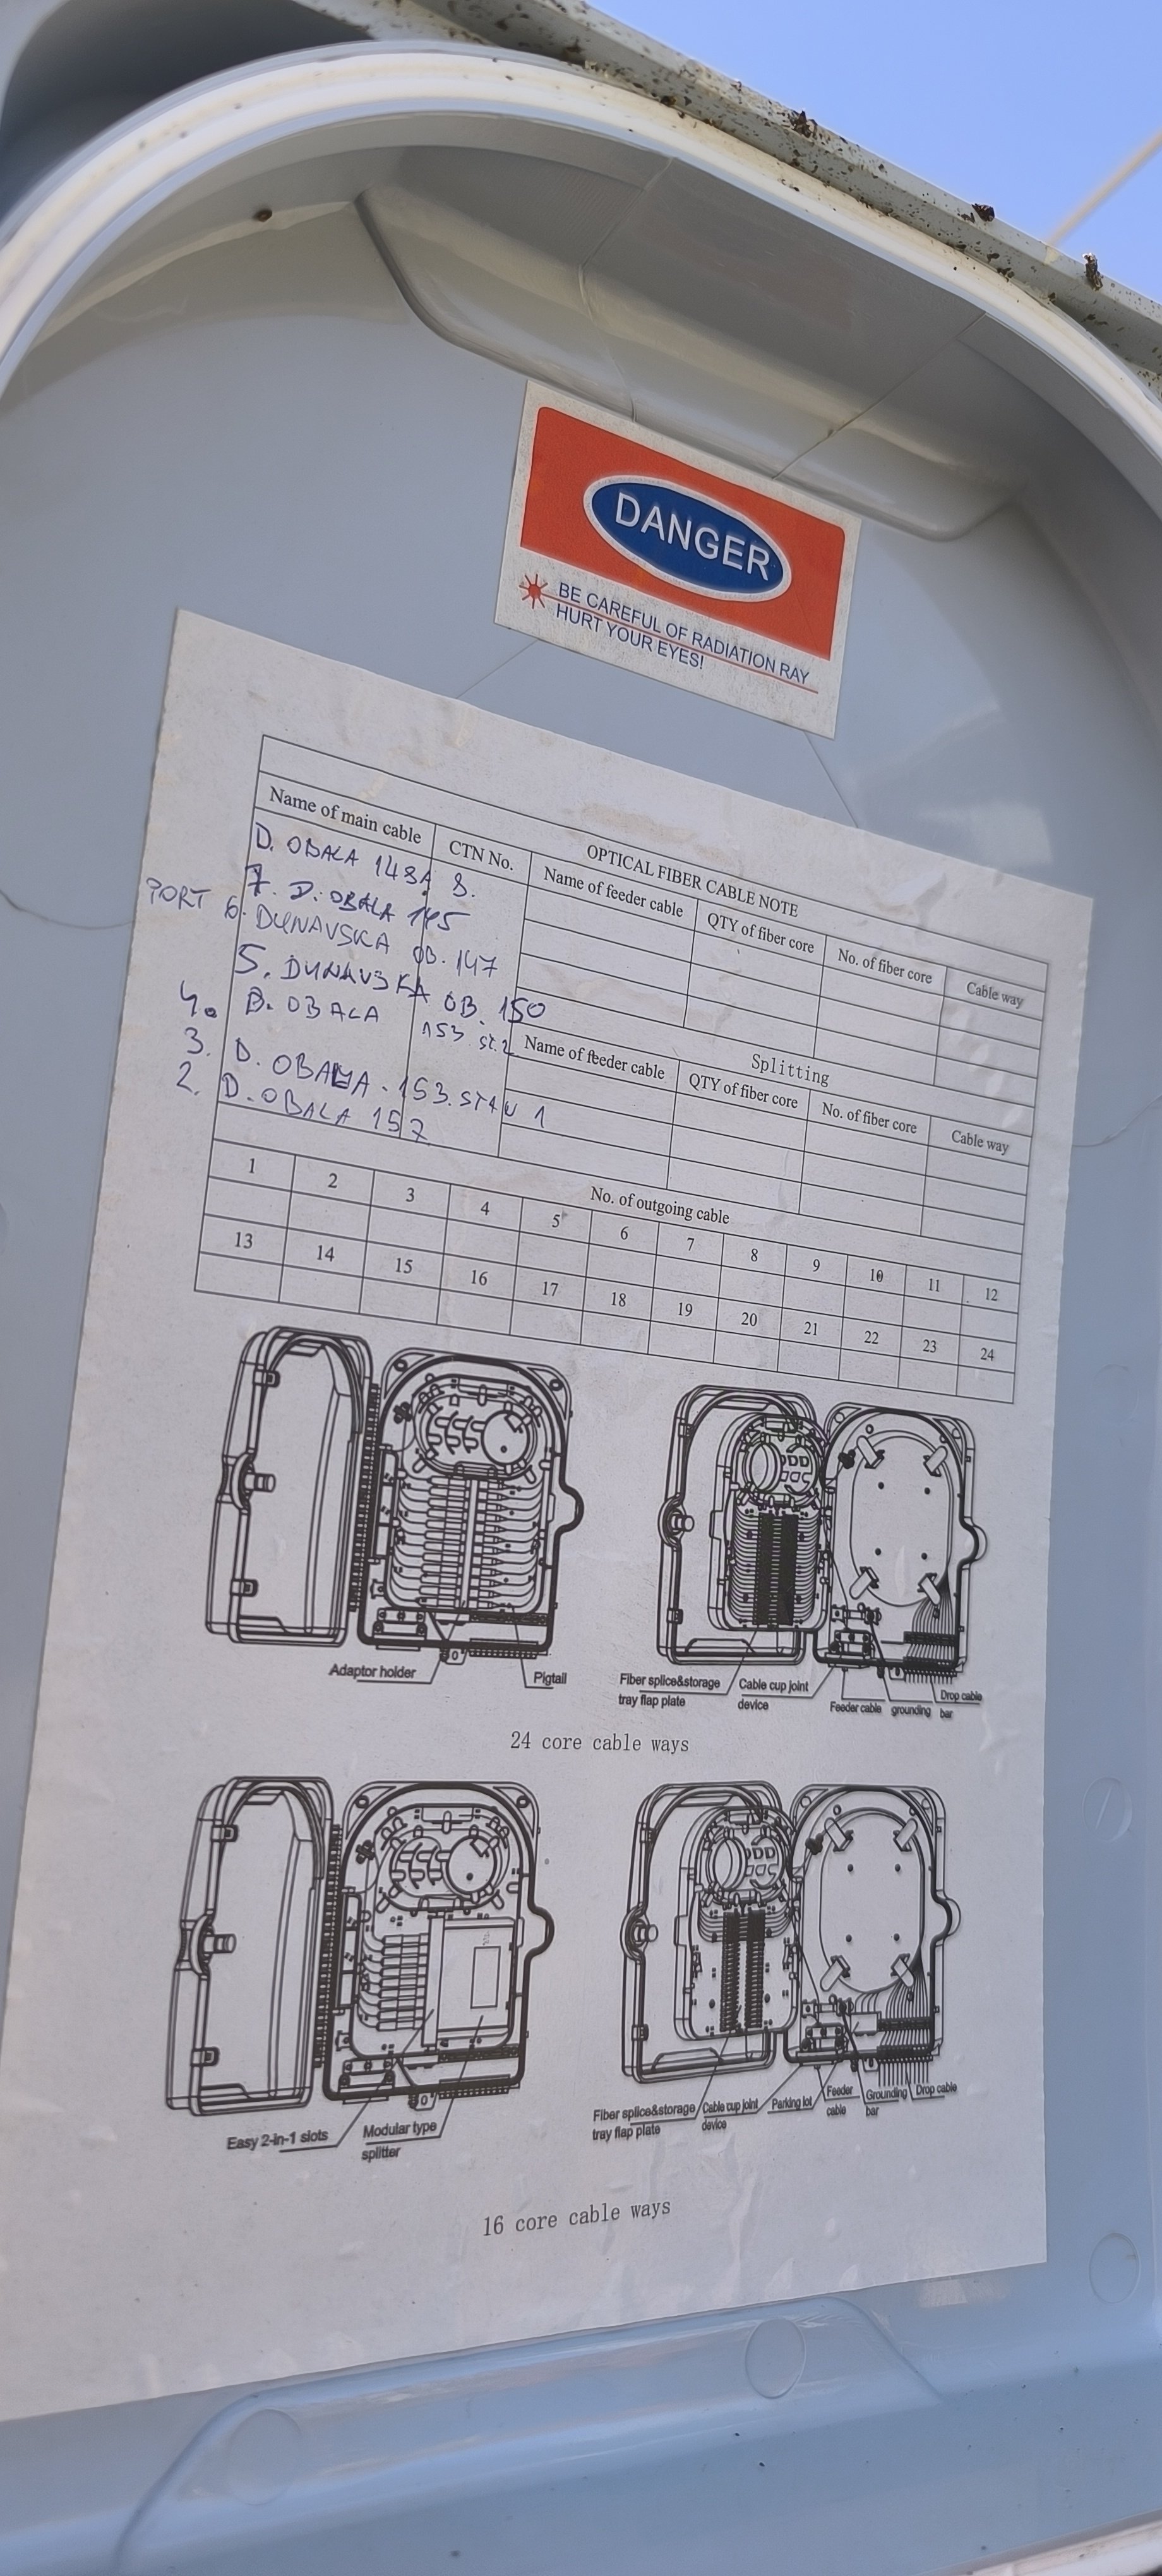 DANGER
BE CAREFUL OF RADIATION RAY
HURT YOUR EYES!
OPTICAL FIBER CABLE NOTE
Name of main cable CTN No. Name of feeder cable QTY of fiber core No. of fiber core Cable way
D. OBALA 148A 8.
7. D. OBALA 145
PORT 6. DUNAVSKA OB. 147
5. DUNAVSKA OB. 150
4. D. OBALA 153. ST.2
3. D. OBALA - 153. STAN 1
2. D. OBALA 157
Splitting
Name of feeder cable QTY of fiber core No. of fiber core Cable way
No. of outgoing cable
1 2 3 4 5 6 7 8 9 10 11 12
13 14 15 16 17 18 19 20 21 22 23 24
Adaptor holder Pigtail
Fiber splice&storage tray flap plate Cable cup joint device Feeder cable grounding bar Drop cable
24 core cable ways
Easy 2-in-1 slots Modular type splitter
Fiber splice&storage tray flap plate Cable cup joint device Parking lot Feeder cable Grounding bar Drop cable
16 core cable ways